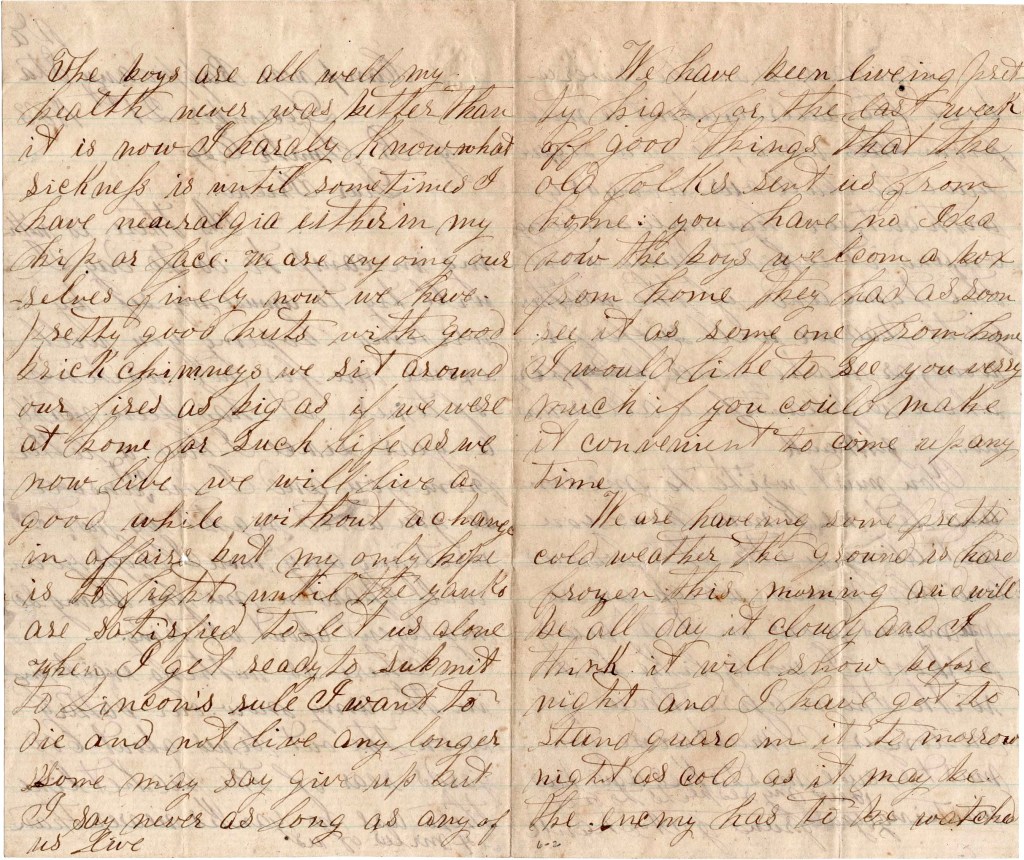 The boys are all well my
health never was better than
it is now I hardly know what
sickness is until sometimes I
have neauralgia eitherin my
hip or face. We are enjoing our
-selves finely now we have
pretty good huts with good
brick chimneys we sit around
our fires as big as if we were
at home for such life as we
now live we will live a
good while without a change
in affairs but my only hope
is to fight until the yanks
are satisfied to let us alone
when I get ready to submit
to Lincon's rule I want to
die and not live any longer
Some may say give up but
I say never as long as any of
us live
We have been liveing pret
ty high for the last week
off good things that the
old folks sent us from
home: you have no Idea
how the boys welcom a box
from home they had as soon
see it as some one from home
I would like to see you verry
much if you could make
it convenient to come up any
time
We are haveing some pretti
cold weather the ground is hard
frozen this morning and will
be all day it cloudy and I
think it will snow before
night and I have got to
stand guard in it to morrow
night as cold as it may be.
the enemy has to be watched
6-2